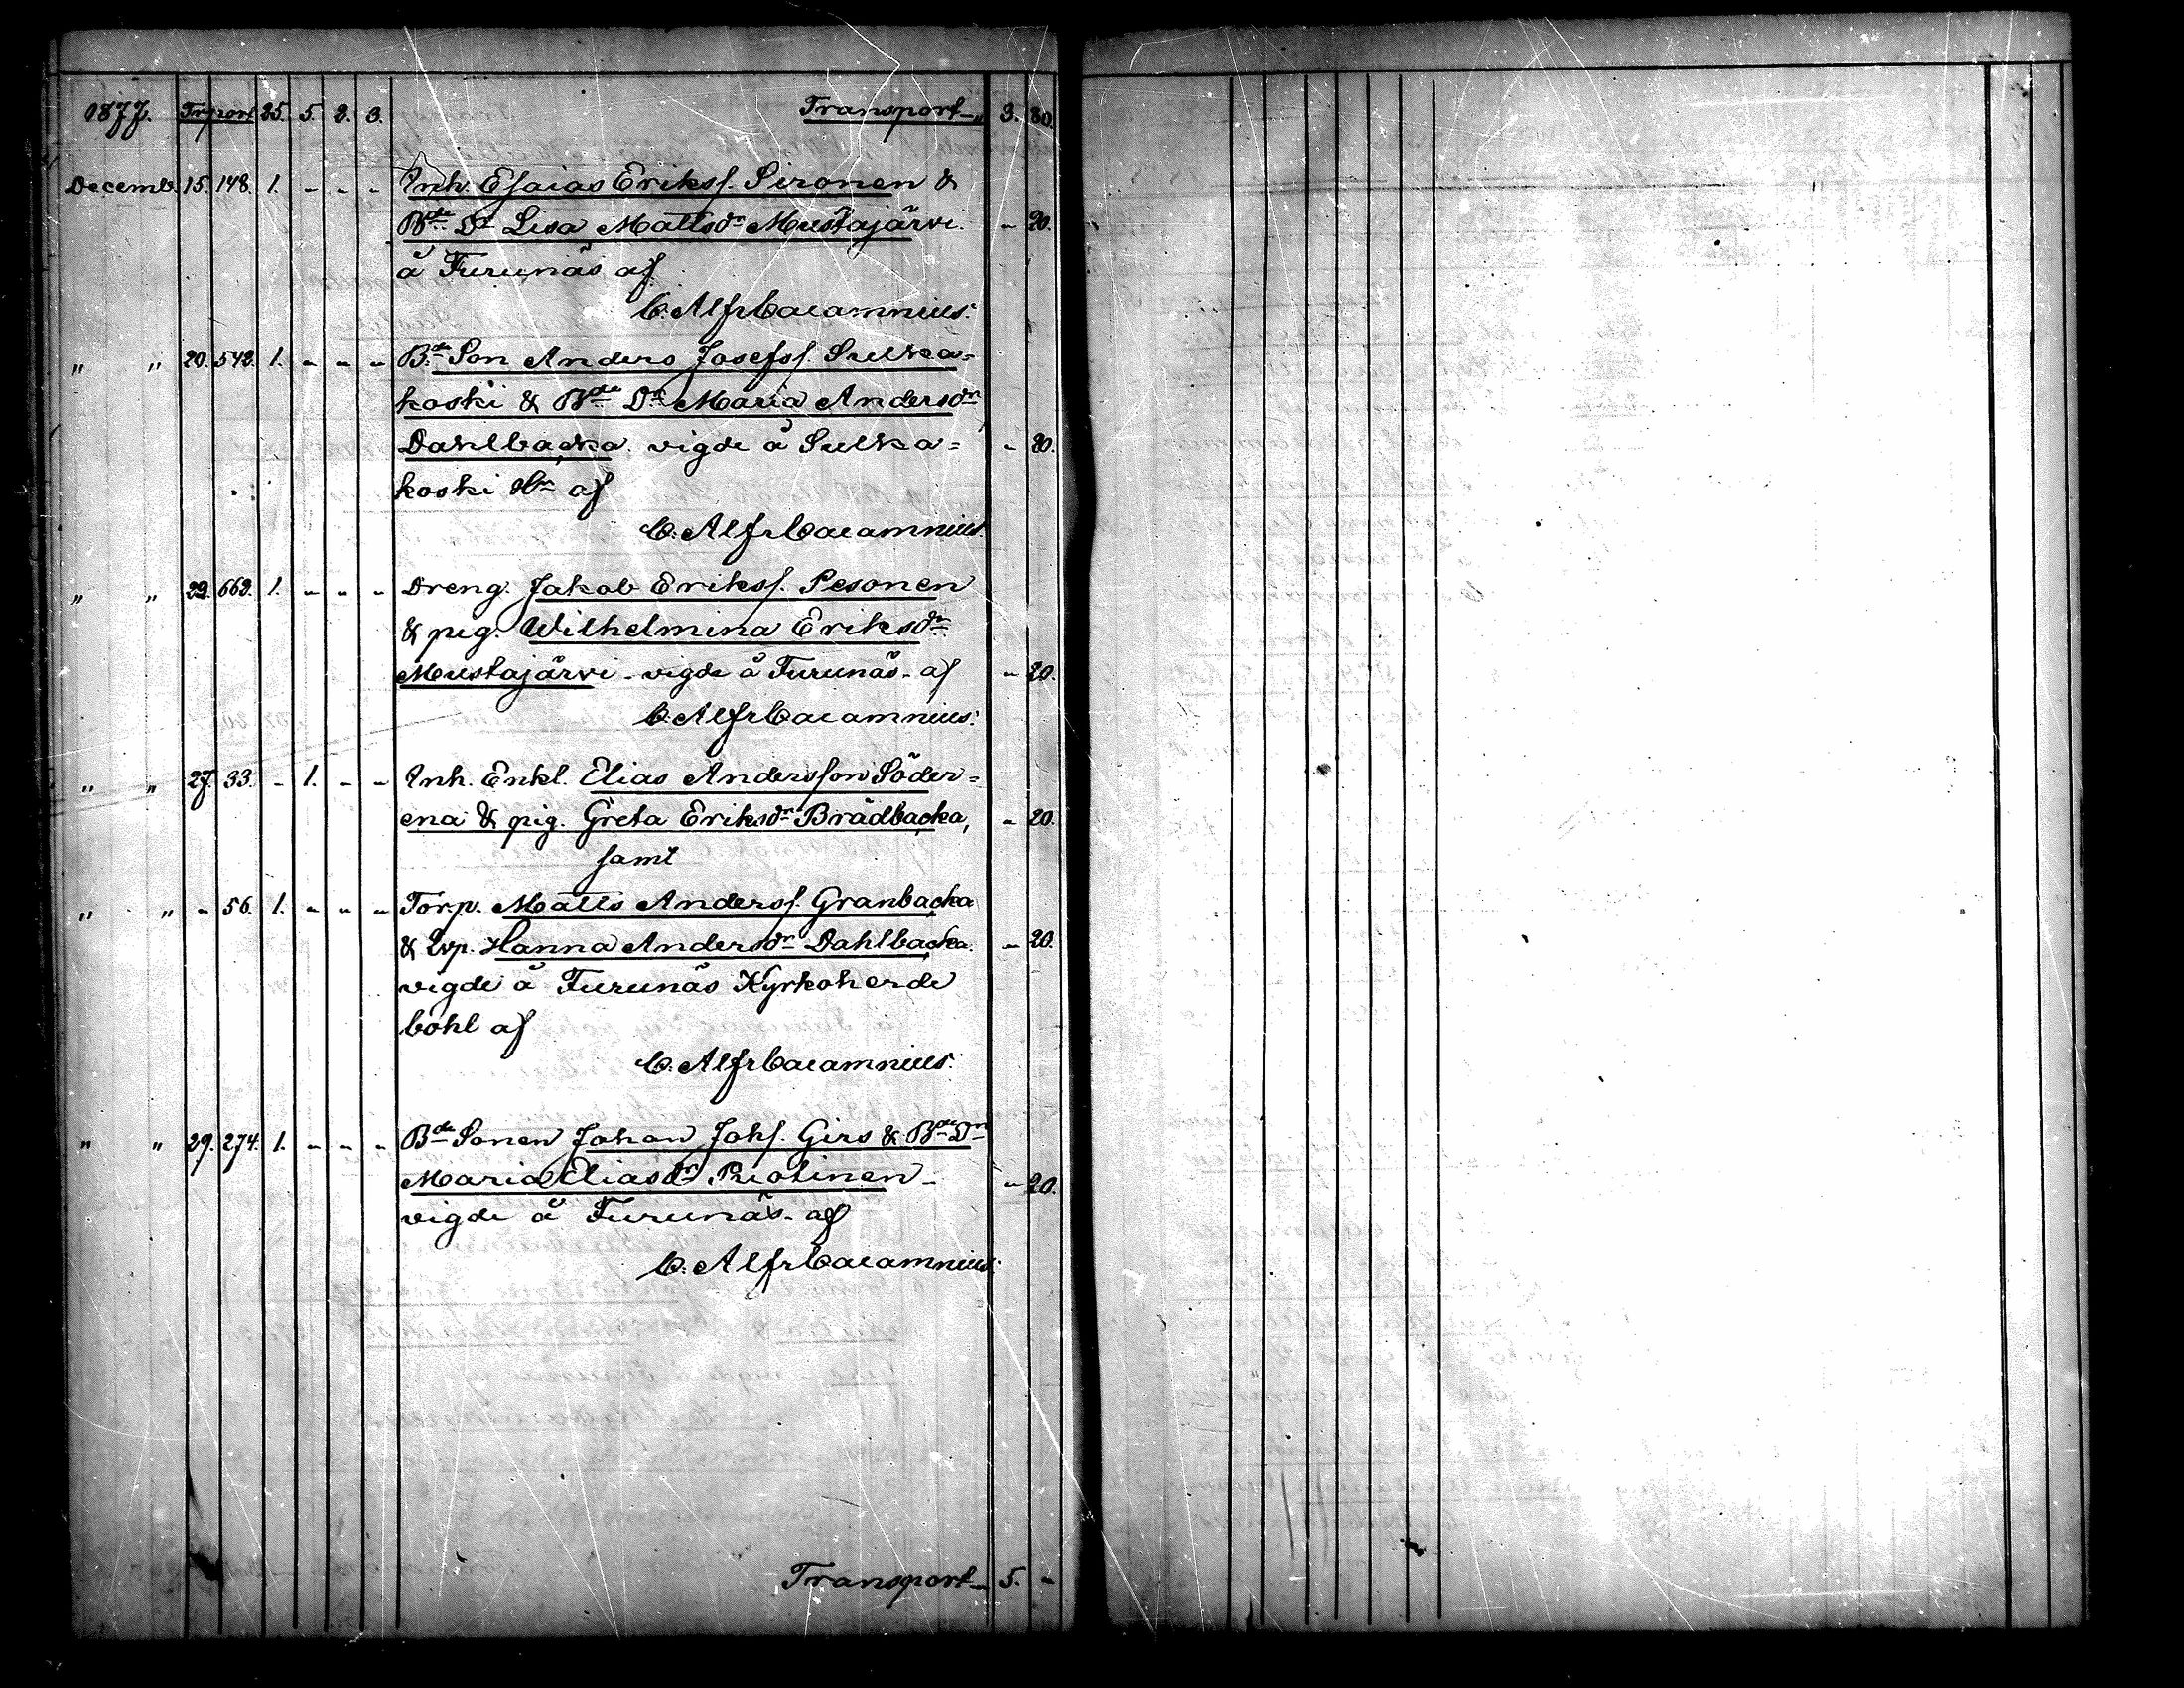 1877. Trport 25. 5. 2. 3. Transport 3. 80.
Decemb. 15. 148. 1. - - - Inh. Esaias Erikss. Sironen &
Bde Dr Lisa Mattsdr Mustajärvi. - 20.
å Furunäs af
C. Alfr Cacamnius.
" " 20. 542. 1. - - - Bde Son Anders Josefss. Sulka=
koski & Bde Dr Maria Andersdr
Dahlbacka vigde å Sulka= - 20.
koski Hn af
C. Alfr Cacamnius.
" " 22. 662. 1. - - - Dreng. Jakob Erikss. Pesonen
& pig. Wilhelmina Eriksdr
Mustajärvi - vigde å Furunäs - af - 20.
C. Alfr Cacamnius.
" " 27. 33. - 1. - - Inh. Enkl. Elias Andersson Söder=
ena & pig. Greta Eriksdr Brädbacka, - 20.
samt
" " - 56. 1. - - - Torp. Matts Anderss. Granbacka
& Hanna Andersdr Dahlbacka - 20.
vigde å Furunäs Kyrkoherde
bohl af
C. Alfr Cacamnius.
" " 29. 274. 1. - - - Bde Sonen Johan Johs. Girs & Bde Dr
Maria Eliasdr Riolinen - - 20.
vigde å Furunäs - af
C. Alfr Cacamnius.
Transport 5. -